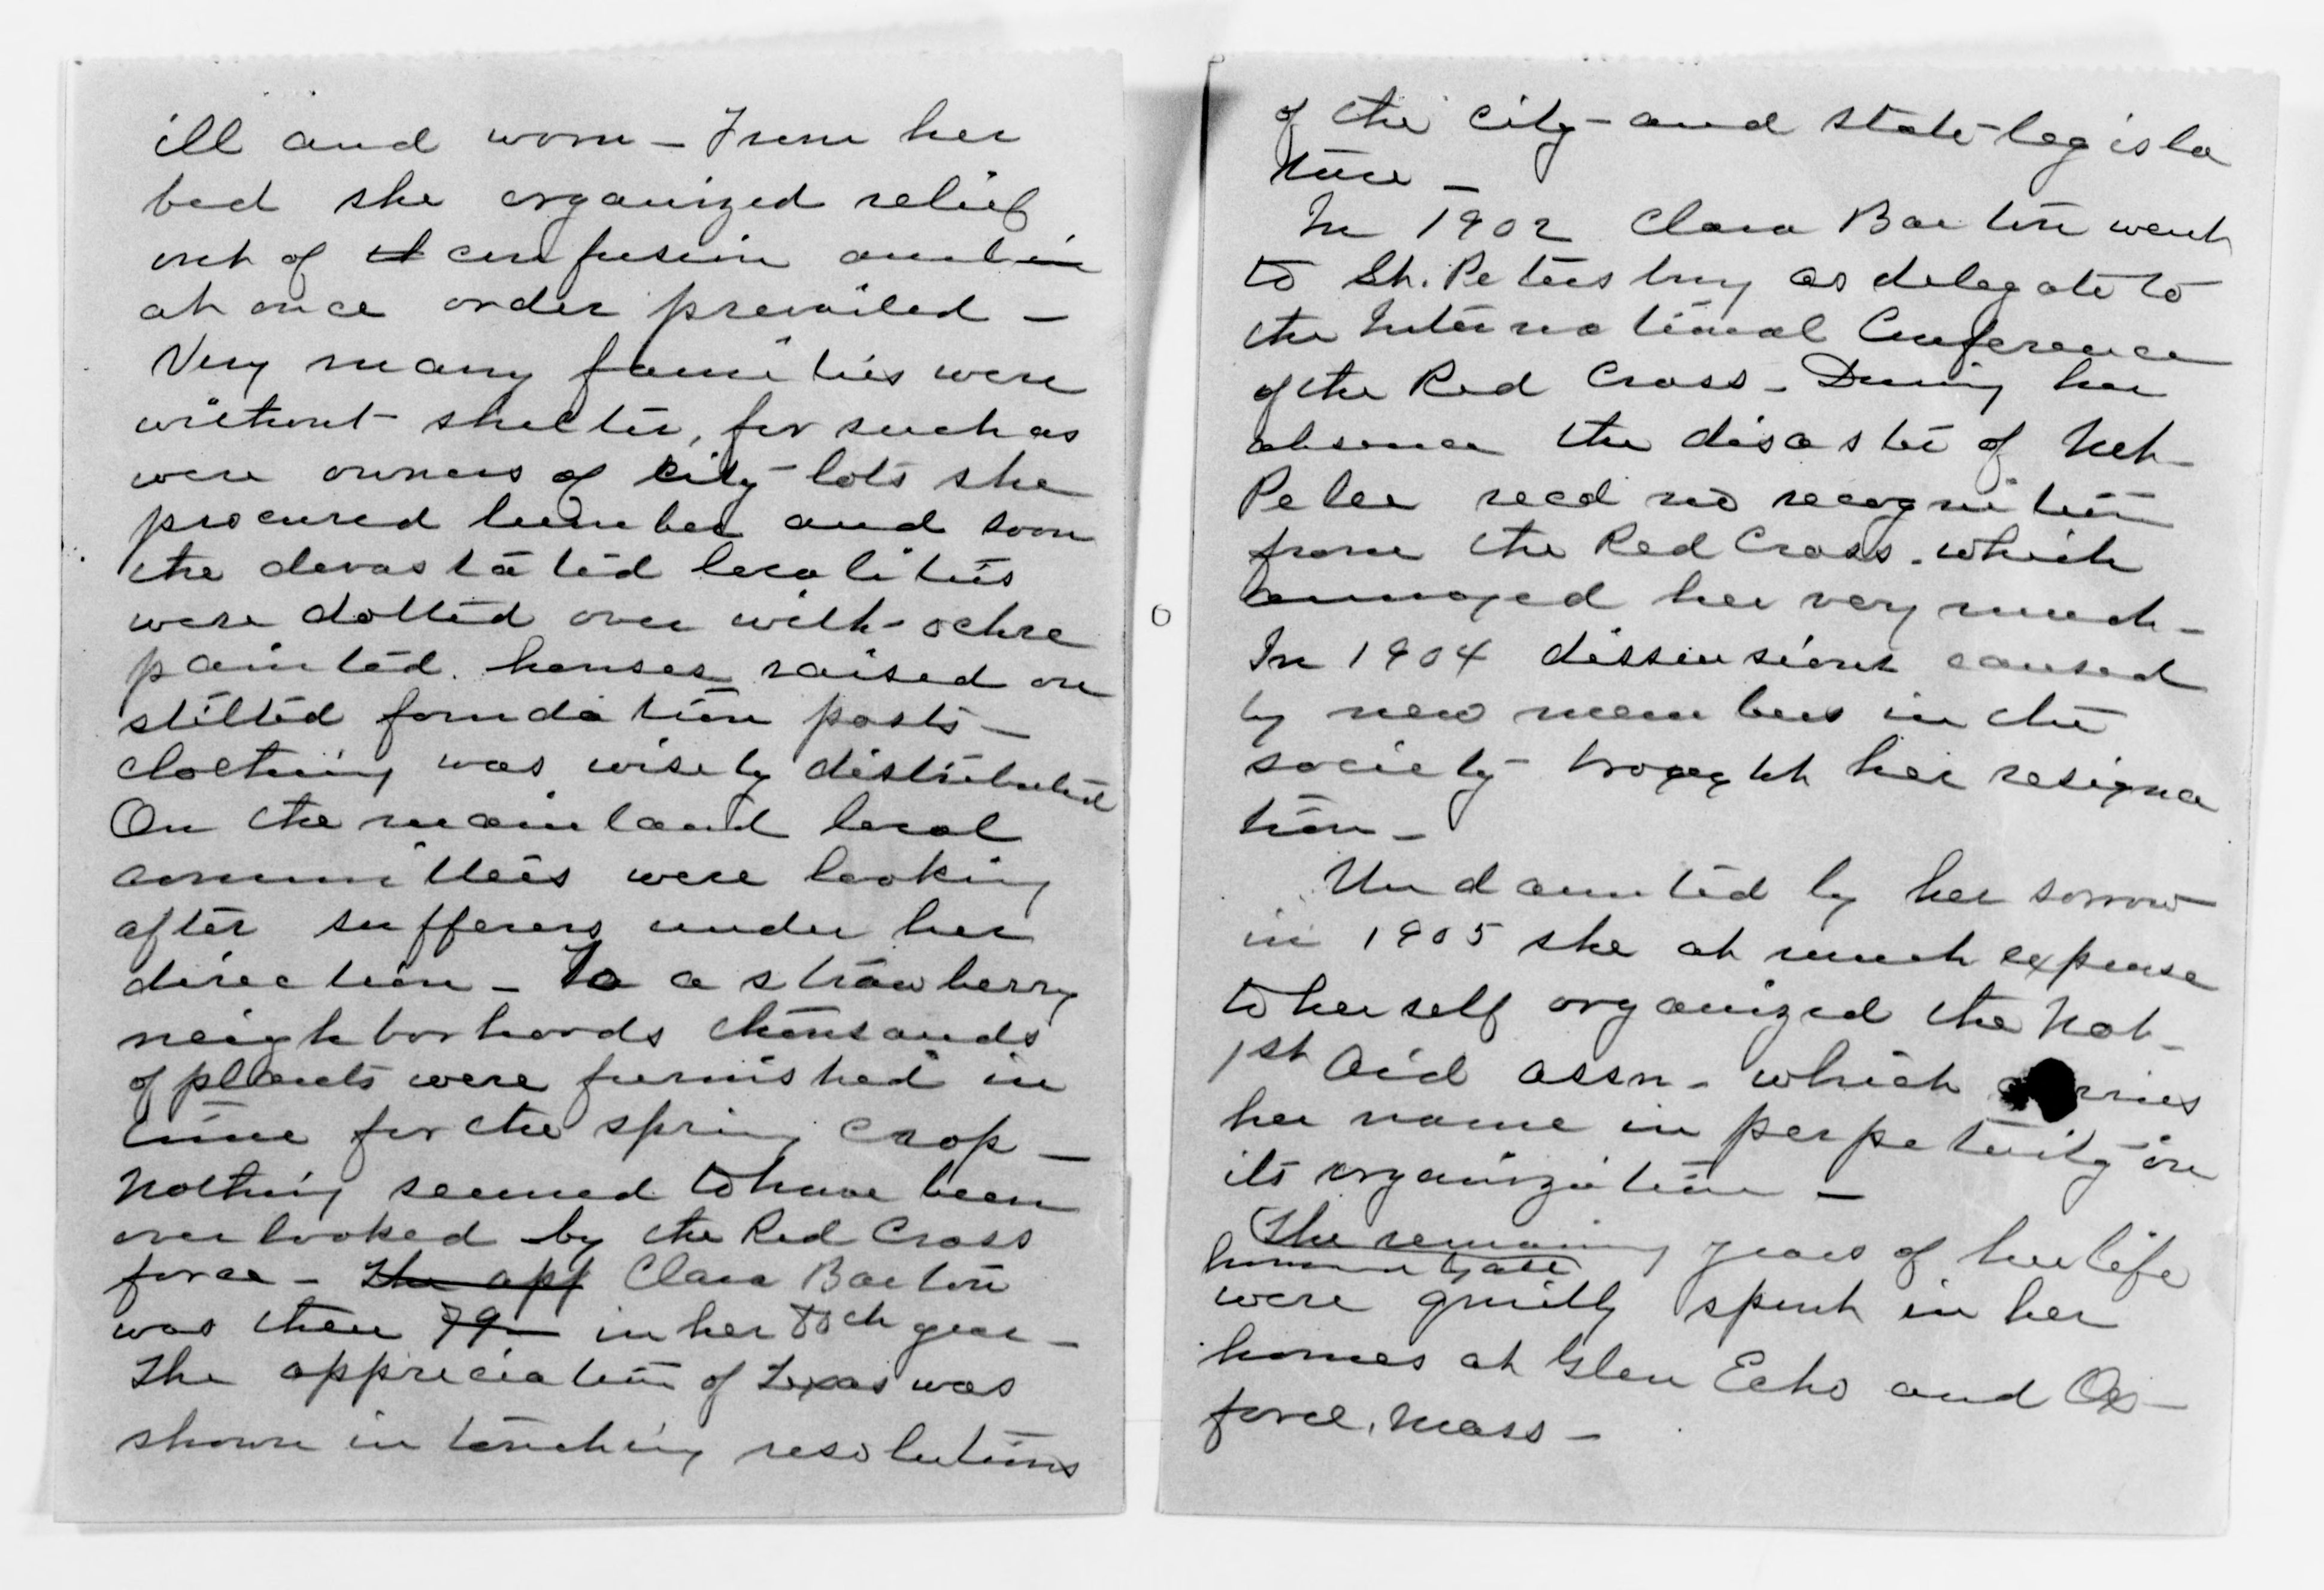 ill and worn - From her
bed she organized relief
out of confusion and in
at once order prevailed -
Very many families were
without shelter, for such as
were owners of city lots she
procured lumber and soon
the devastated localities
were dotted over with ochre
painted houses raised on
stilted foundation posts -
clothing was wisely distributed
On the mainland local
committees were looking
after sufferers under her
direction - To a strawberry
neighborhoods thousands
of plants were furnished in
time for the spring crop -
Nothing seemed to have been
overlooked by the Red Cross
force - The app Clara Barton
was then 79 in her 80th year -
The appreciation of Texas was
shown in touching resolutions
of the city - and state legisla
ture -
In 1902 Clara Barton went
to St. Petersburg as delegate to
the International Conference
of the Red Cross - During her
absence the disaster of Mt -
Pelee recd no recognition
from the Red Cross - which
annoyed her very much -
In 1904 dissensions caused
by new members in the
society brought her resigna
tion -
Undaunted by her sorrow
in 1905 she at much expense
to herself organized the Nat -
1st Aid assn - which
her name in perpetuity in
its organization -
The remaining years of her life
were quietly spent in her
homes at Glen Echo and Ox -
ford, Mass -